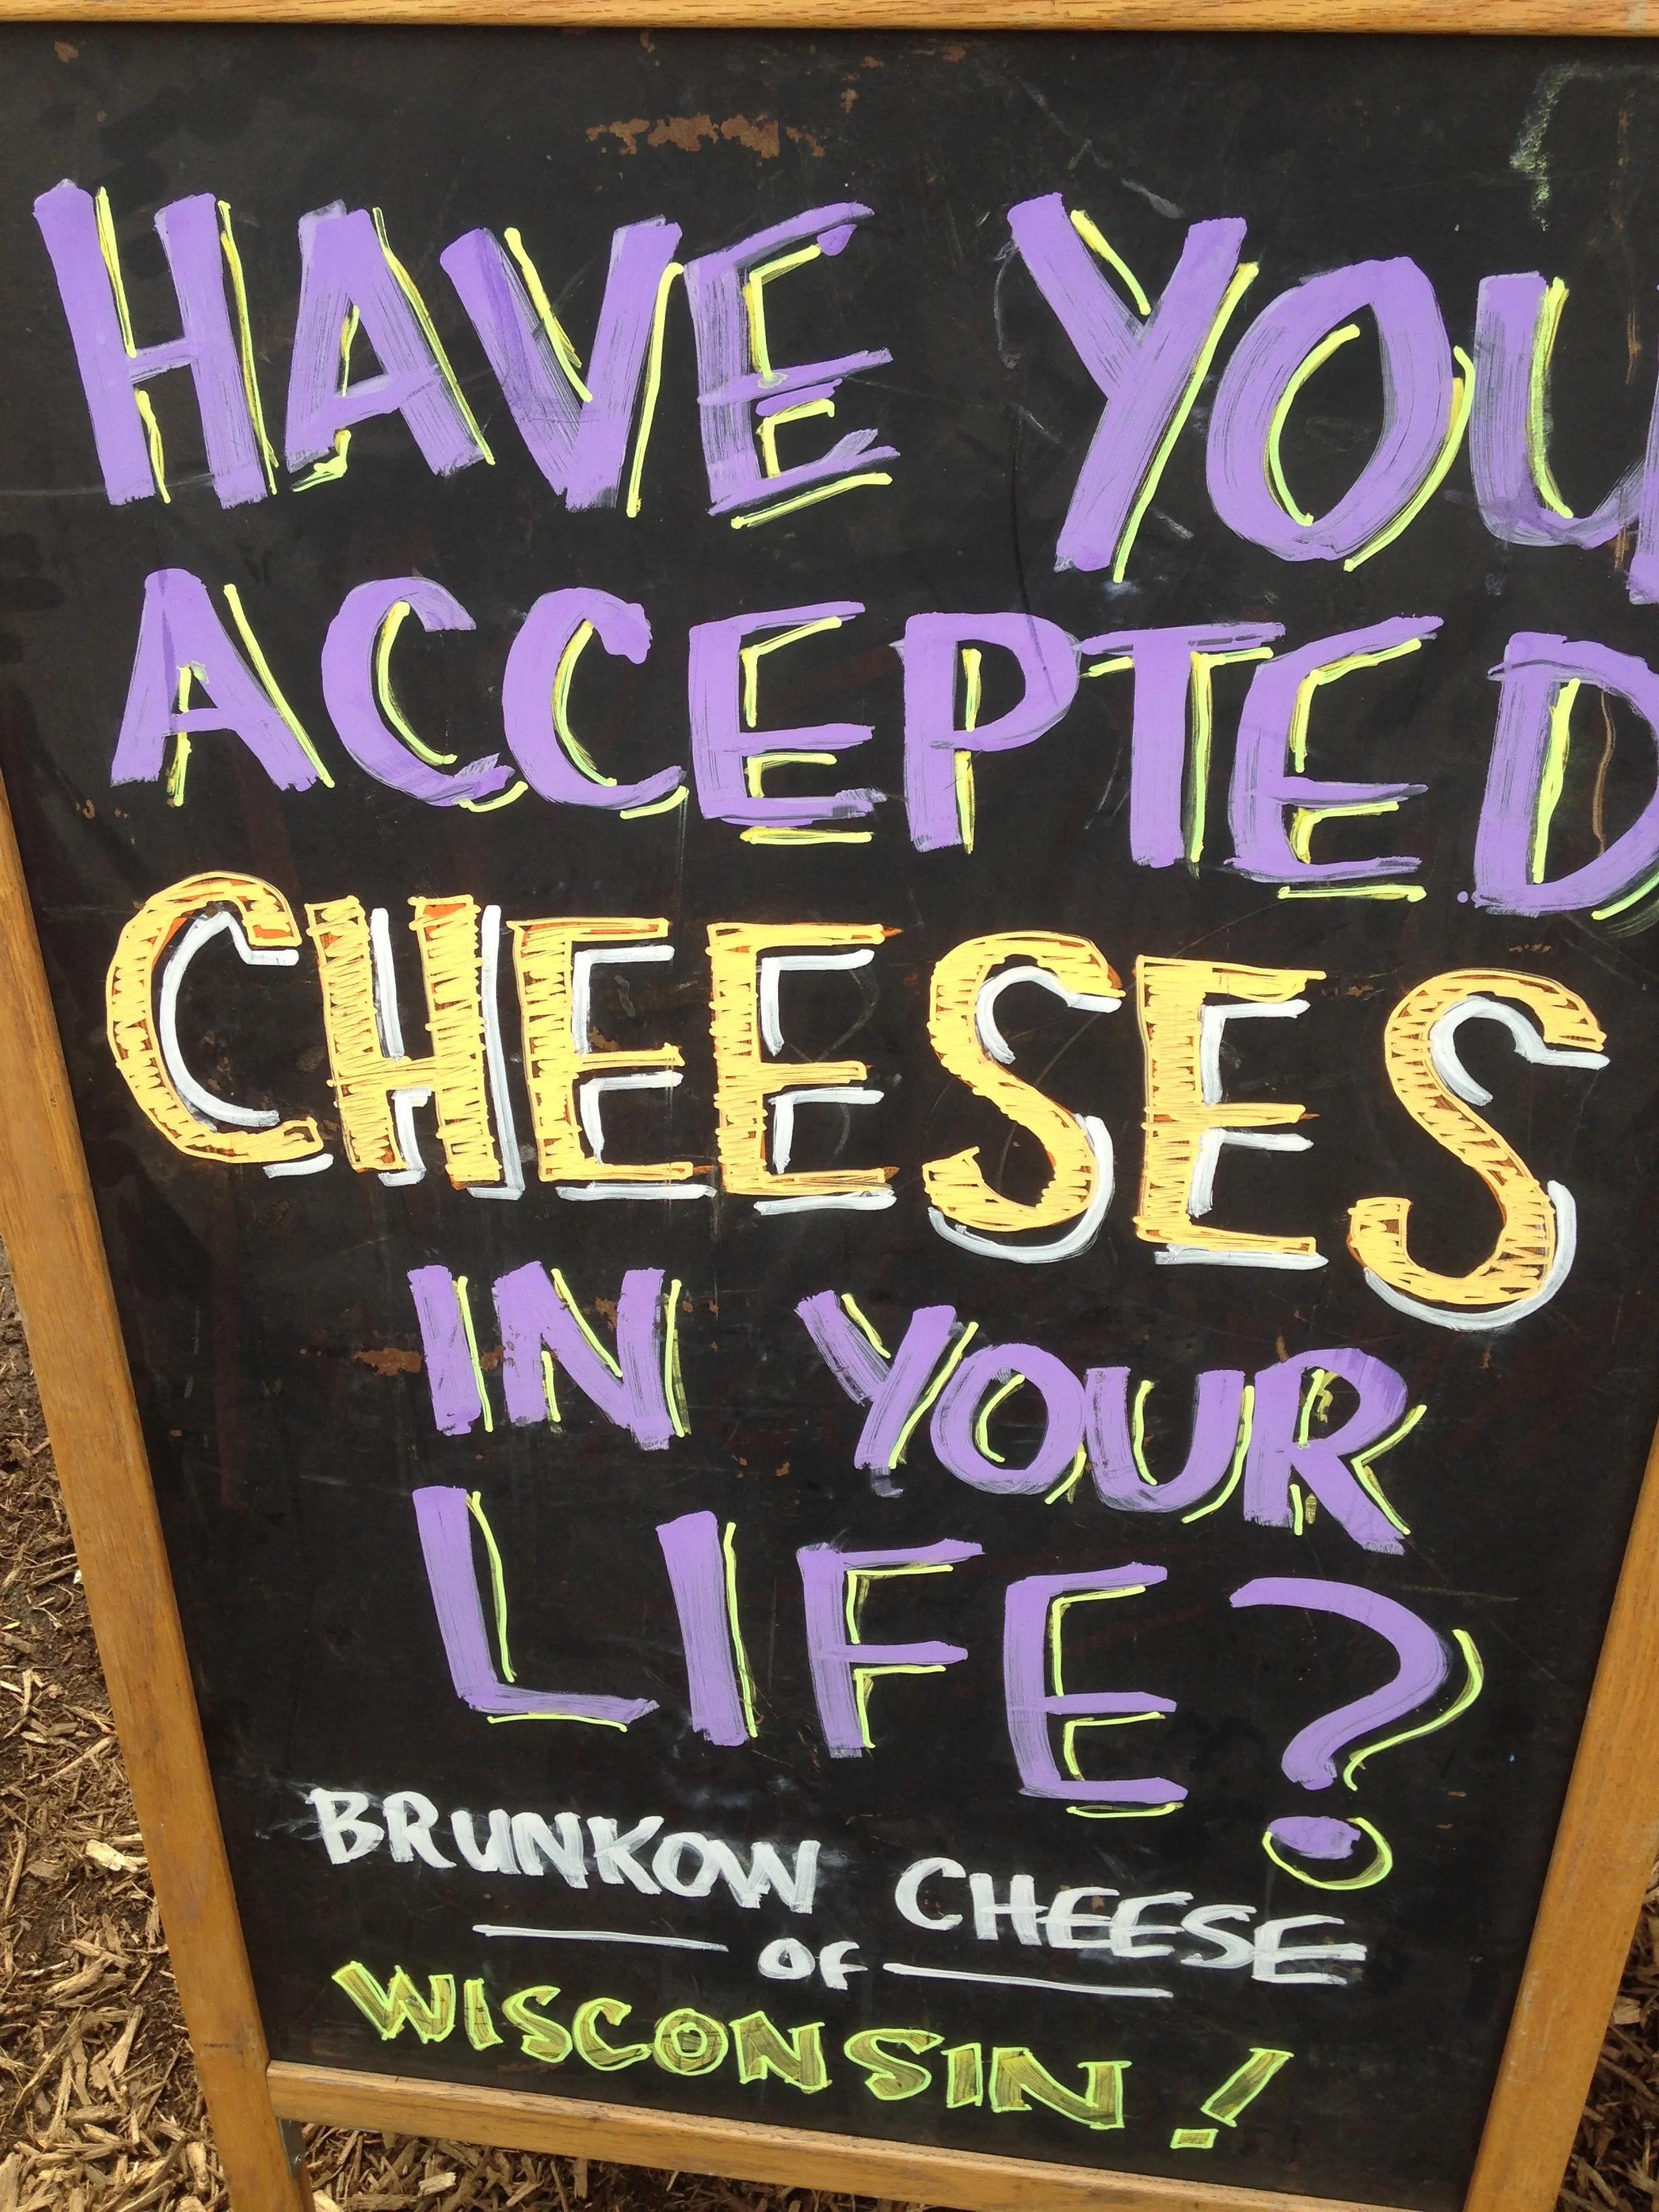 HAVE YOU
ACCEPTED
CHEESES
IN YOUR
LIFE?
BRUNKOW CHEESE
OF
WISCONSIN!